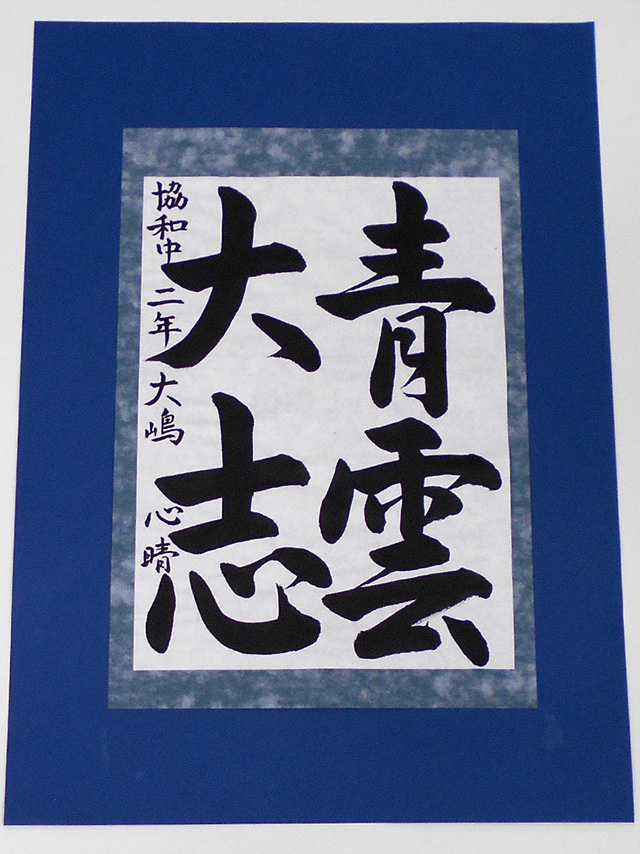 青雲
大志
協和中 二年 大嶋 心晴